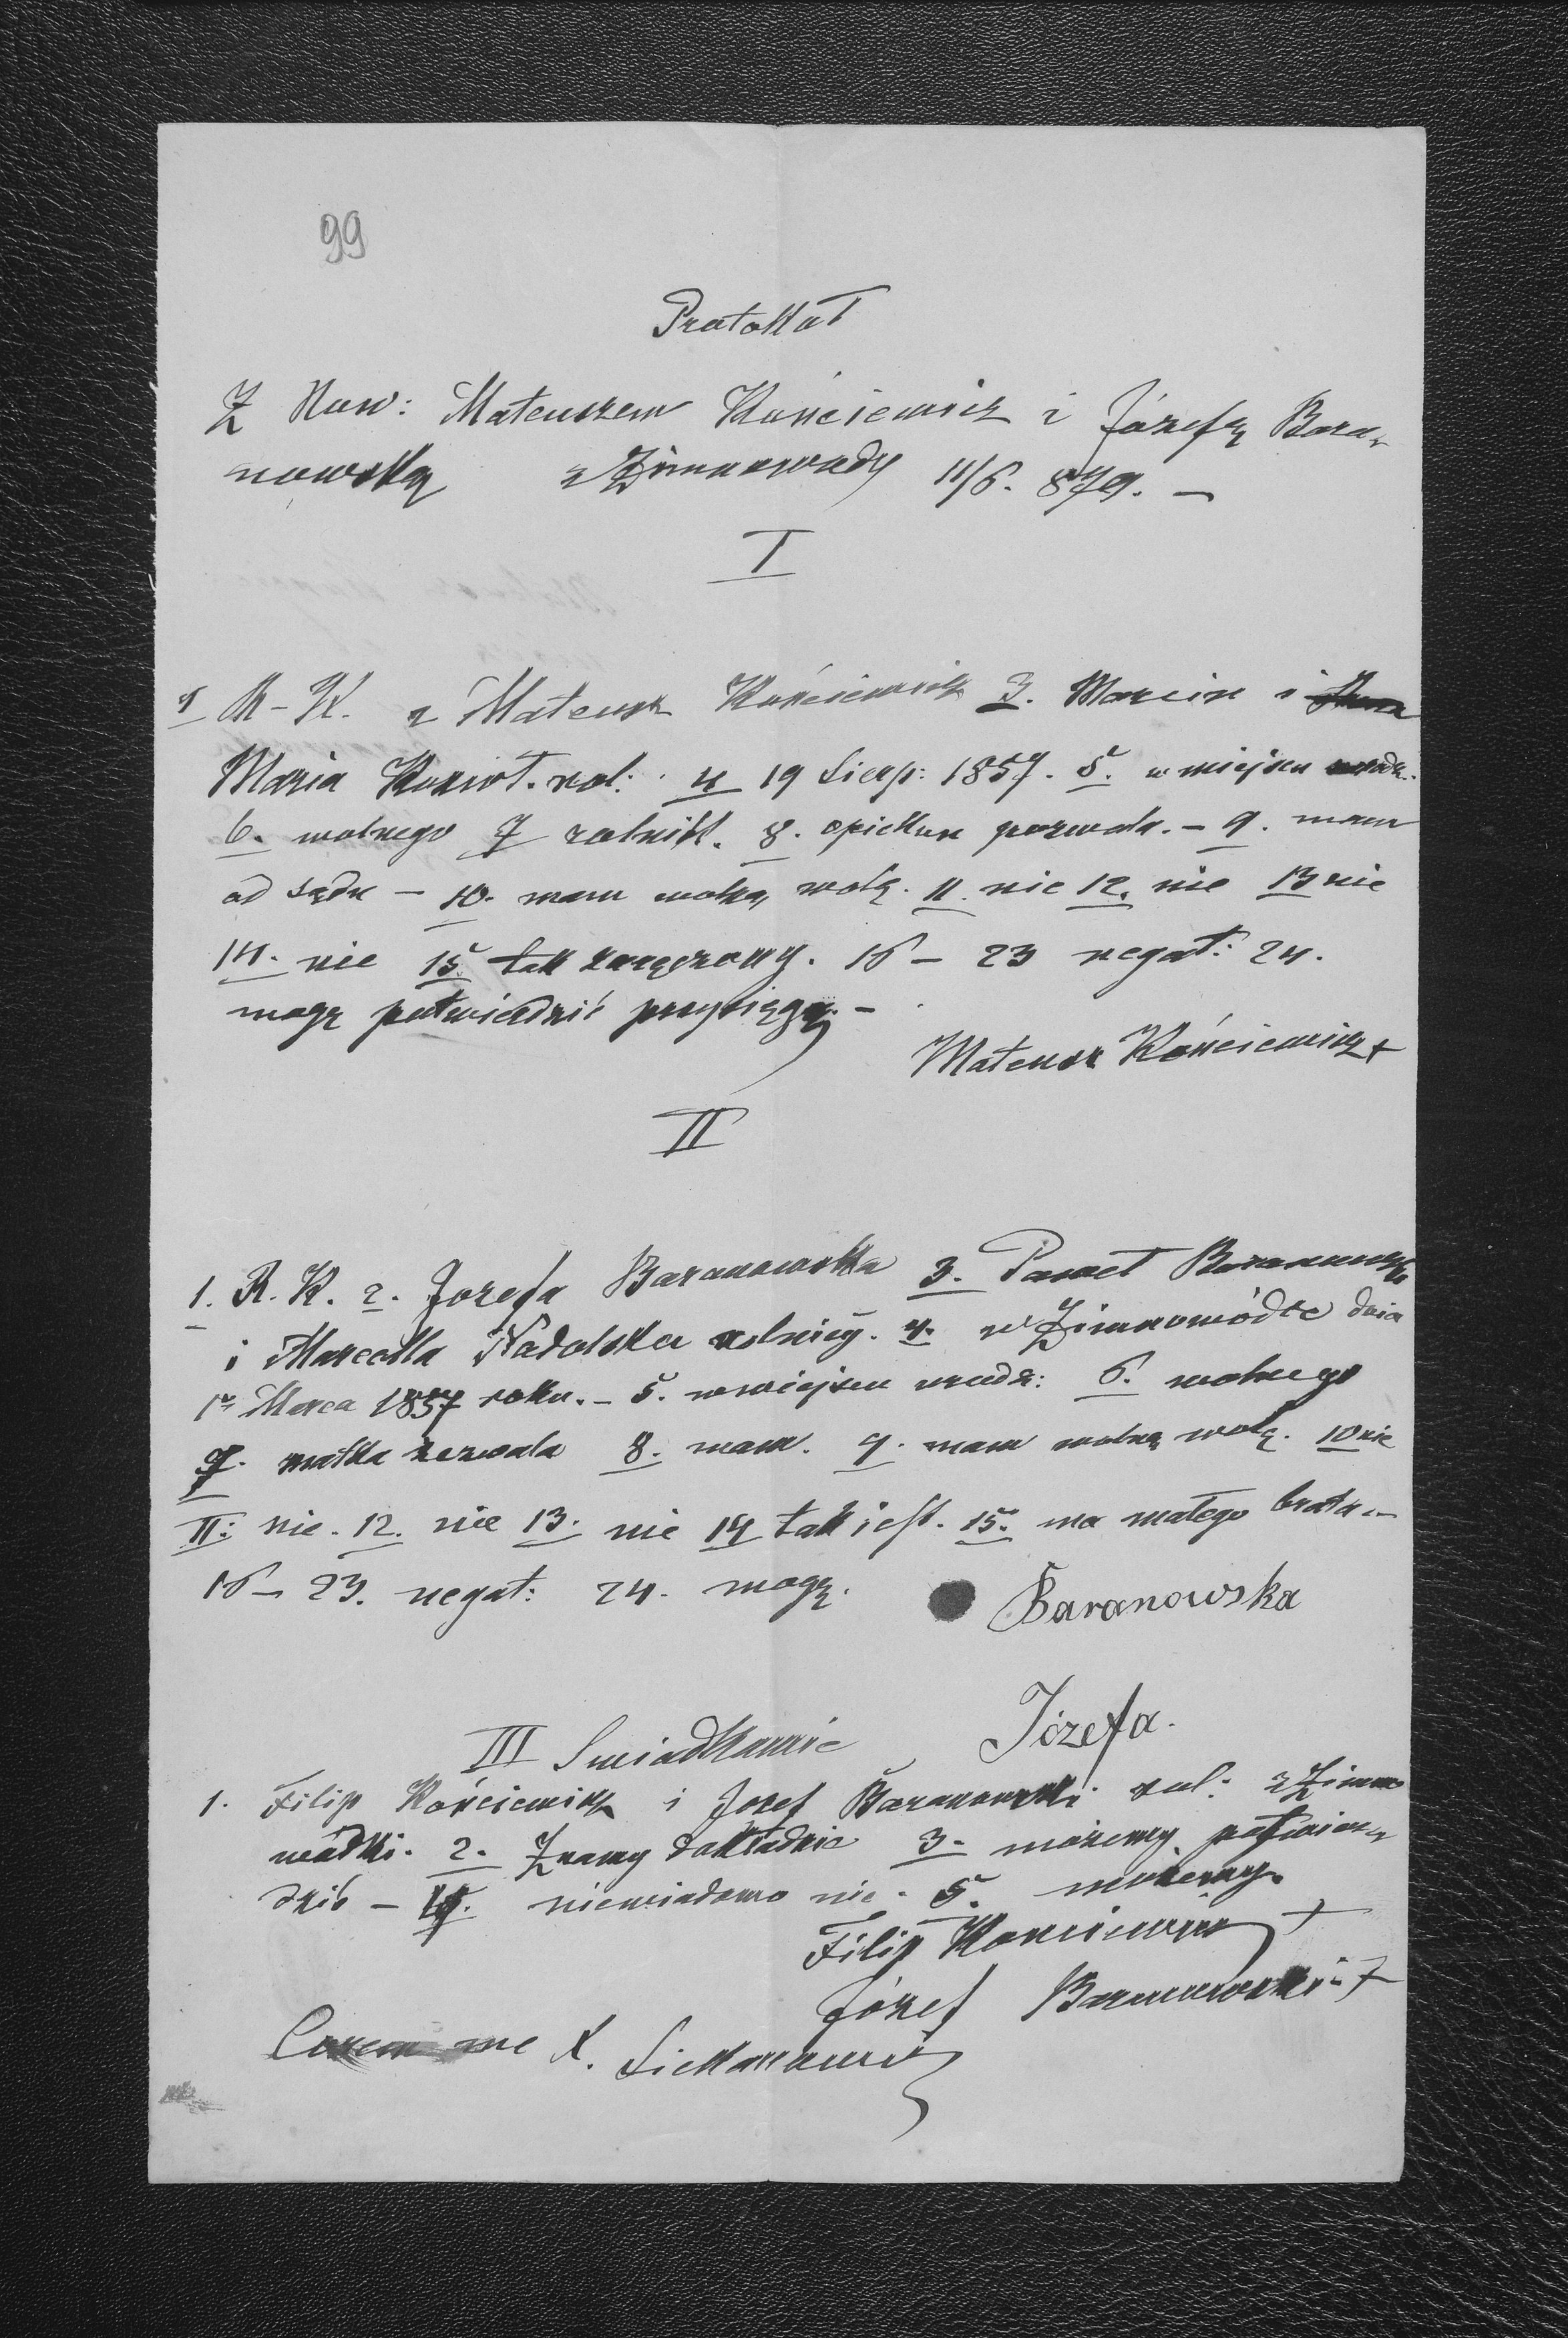 99
Protokół
Z Naw: Mateuszem Kościewicz i Józefą Bara-
nowską z Zimnowody 11/6. 879. —
I
1 R-K. 2 Mateusz Kościewicz 3. Marcin i
Maria rol: 4 19 Sierp: 1857. 5. w miejscu urodz.
6. wolnego 7 rolnik. 8. opiekun pozwala. — 9. mam
od Sądu — 10. mam wolną wolę. 11. nie 12. nie 13 nie
14. nie 15. tak zaręczony. 16 — 23 negat: 24.
mogę potwierdzić przysięgą. —
Mateusz Kościewicz +
II
1. R. K. 2. Jozefa Baranowska 3. Paweł Baranowski
i Marcella Nadolska rolnicy. 4. w Zimnowódce dnia
1go Marca 1857 roku. — 5. w miejscu urodz: 6. wolnego
7. matka zezwala 8. mam. 9. mam wolną wolę. 10 nie
11: nie. 12. nie 13. nie 14 tak jest. 15. ma małego brata —
16 — 23. negat: 24. mogę.
Baranowska
Józefa.
III Swiadkowie
1. Filip Kościewicz i Jozef Baranowski rol: z Zimno
wódki. 2. Znamy dokładnie 3. możemy potwier-
dzić — 4. niewiadomo nic. 5. możemy.
Filip Kościewicz +
Józef Baranowski +
Coram me X.